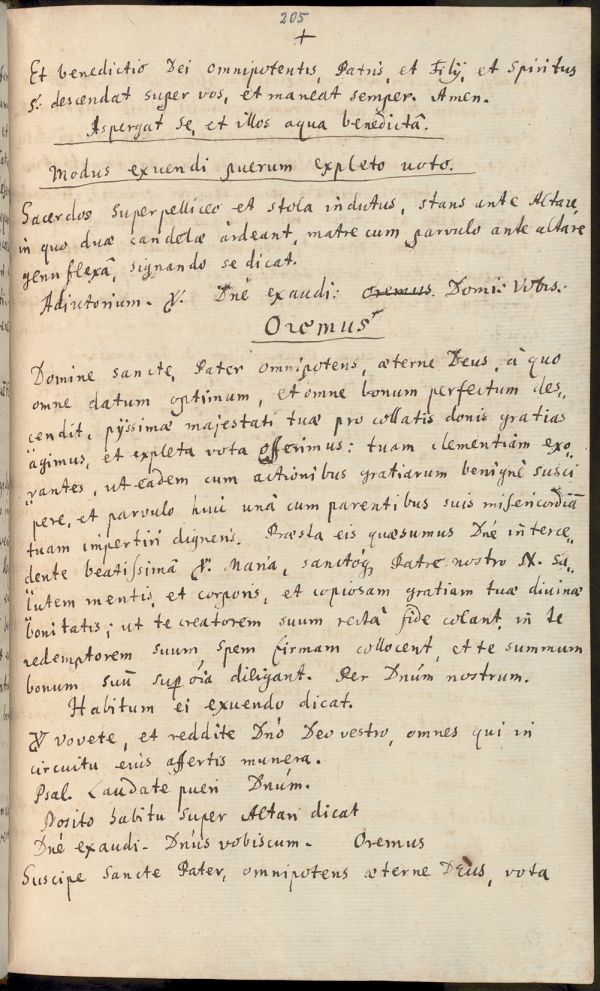 205
+
Et benedictio Dei omnipotentis, Patris, et Filij, et Spiritus
S: descendat super vos, et maneat semper. Amen.
Aspergat se, et illos aqua benedictâ.
Modus exuendi puerum expleto uoto.
Sacerdos superpelliceo et stola indutus, stans ante Altare,
in quo duæ candelæ ardeant, matre cum parvulo ante altare
genu flexâ, signando se dicat.
Adiutorium. ℣. Dnẽ exaudi: oremus. Domi: Vobis.
Oremus
Domine sancte, Pater omnipotens, æterne Deus, à quo
omne datum optimum, et omne bonum perfectum des„
cendit, pijssimæ majestati tuæ pro collatis donis gratias
agimus, et expleta vota offerimus: tuam clementiam exo„
rantes, ut eadem cum actionibus gratiarum benignè susci
pere, et parvulo huic unà cum parentibus suis misericordiã
tuam impertiri digneris. Præsta eis quæsumus Dnẽ interce„
dente beatissimâ V. Maria, sanctoq; Patre nostro N. sa„
lutem mentis, et corporis, et copiosam gratiam tuæ divinæ
bonitatis; ut te creatorem suum rectâ fide colant, in te
redemptorem suum spem firmam collocent, et te summum
bonum suũ sup oĩa diligant. Per Dnúm nostrum.
Habitum ei exuendo dicat.
℣ vovete, et reddite Dnó Deo vestro, omnes qui in
circuitu eius affertis munera.
Psal. Laudate pueri Dnúm.
Posito habitu super Altari dicat
Dné exaudi. Dnús vobiscum. Oremus
Suscipe sancte Pater, omnipotens æterne Deus, vota